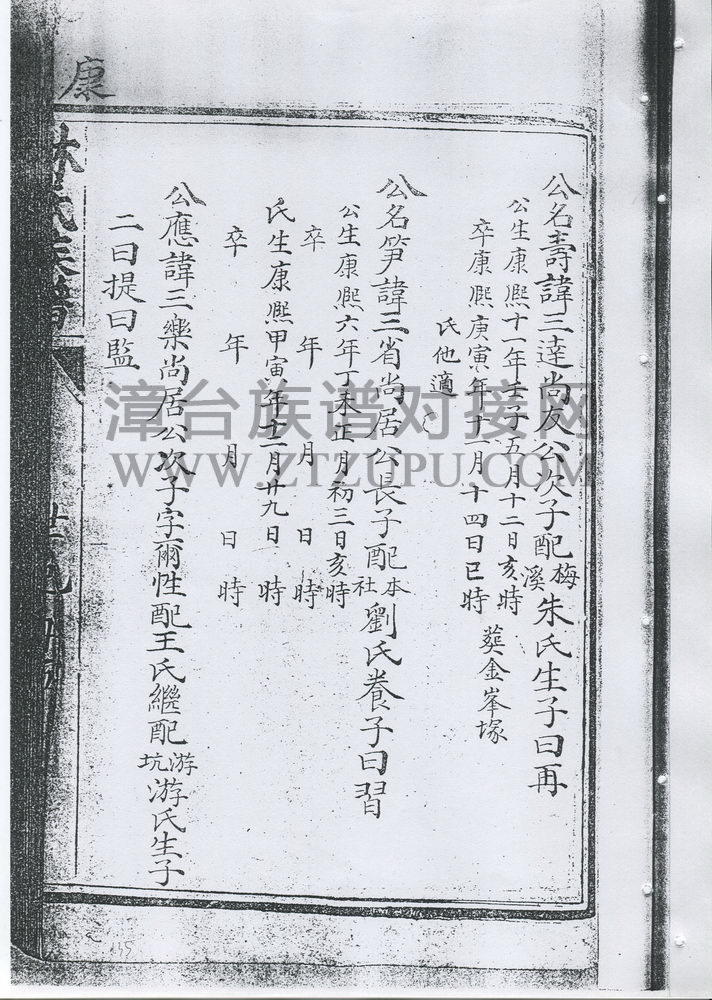 康
公名壽諱三達尚友公次子配梅溪朱氏生子曰再
公生康熙十一年壬子五月十二日亥時
卒康熙庚寅年十一月十四日巳時 葬金峯塚
氏他適
公名笋諱三省尚居公長子配本社劉氏養子曰習
公生康熙六年丁未正月初三日亥時
卒 年 月 日 時
氏生康熙甲寅年十二月廿九日 時
卒 年 月 日 時
公應諱三樂尚居公次子字爾性配王氏繼配游坑游氏生子
二曰提曰監
林氏族譜
漳台族谱对接网
WWW.ZTZUPU.COM